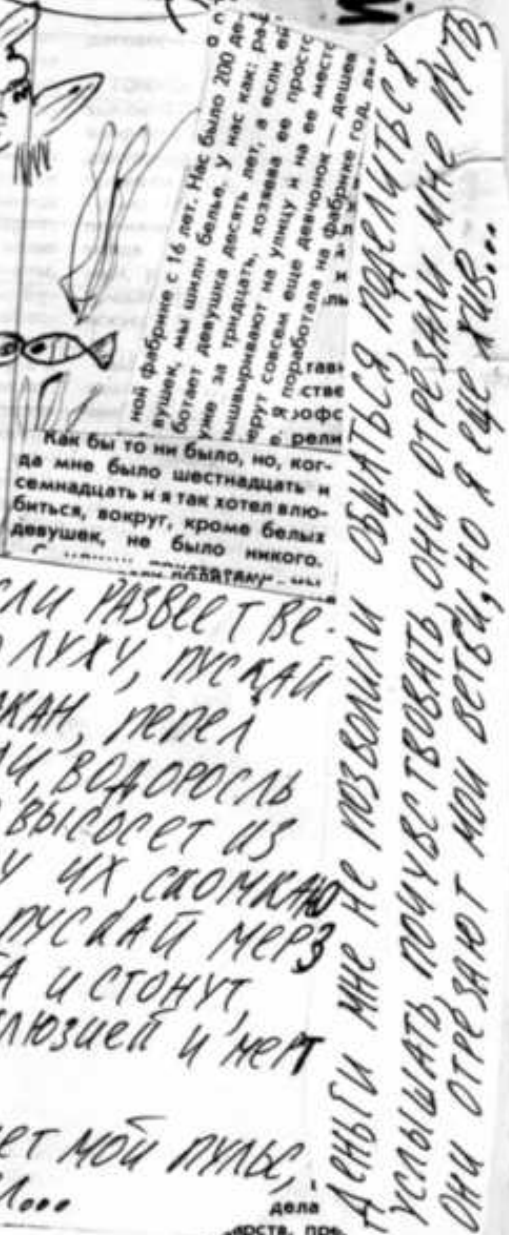 И.
ной фабрике с 16 лет. Нас было 200 де-
вушек, мы шили белье, у нас как: ра-
ботает девушка десять лет, а если ей
уже за тридцать, хозяева ее просто
вышвыривают на улицу и на ее место
берут совсем еще девчонок — дешев
поработала на фабрике год,
Как бы то ни было, но, ког-
да мне было шестнадцать и
семнадцать и я так хотел влю-
биться, вокруг, кроме белых
девушек, не было никого.
СЛИ РАЗВЕЕТ ВЕ-
ЛУЖУ, ПУСКАЙ
КАН, ПЕПЕЛ
ВОДОРОСЛЬ
ВЫСОСЕТ ИЗ
У ИХ, СКОМКАЮ
ПУСКАЙ МЕРЗ
И СТОНУТ,
ЛЮЗИЕЙ И МЕРТ
ЕТ МОЙ ПУЛЬС,
Л...
ДЕНЬГИ МНЕ НЕ ПОЗВОЛИЛИ ОБЩАТЬСЯ, ПОДЕЛИТЬСЯ,
УСЛЫШАТЬ, ПОЧУВСТВОВАТЬ, ОНИ ОТРЕЗАЛИ МНЕ ПУТЬ,
ОНИ ОТРЕЗАЮТ МОИ ВЕТВИ, НО Я ЕЩЕ ЖИВ...
тави
стве
рофс
рели
дела